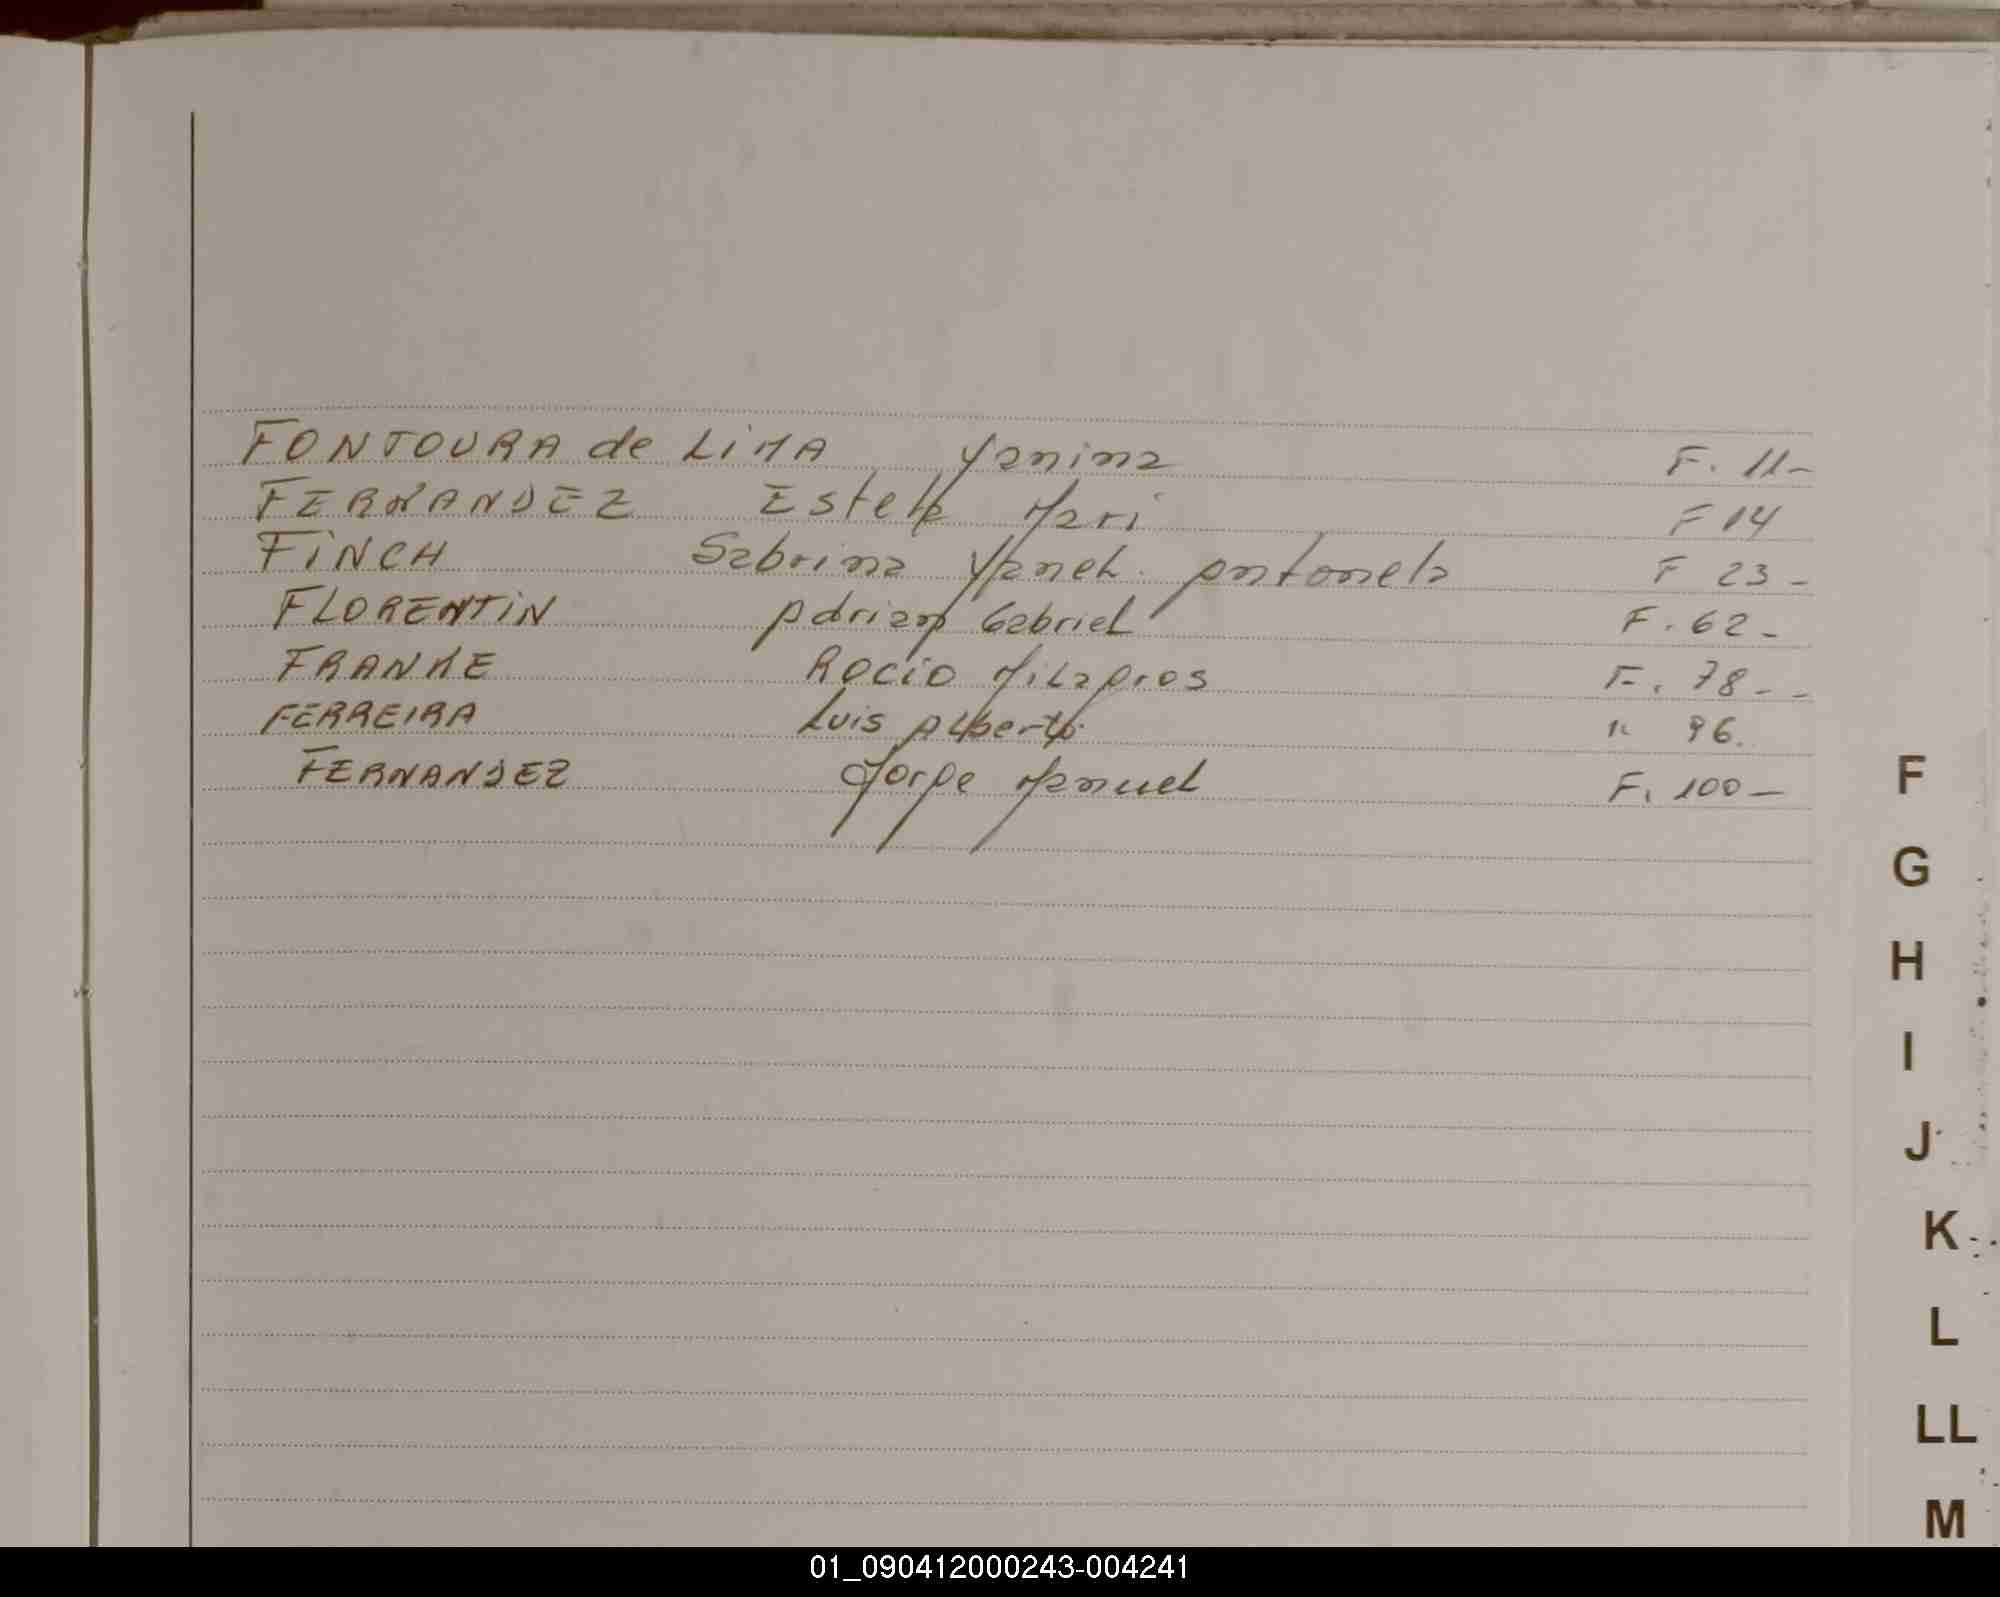 FONTOURA de LIMA Yanina F. 11-
FERNANDEZ Estela Mari F 14
FINCH Sabrina Yanel Antonela F 23-
FLORENTIN Adrian Gabriel F. 62-
FRANKE ROCIO Milagros F. 78--
FERREIRA Luis Alberto " 96.
FERNANDEZ Jorge Manuel F. 100-
F
G
H
I
J
K
L
LL
M
01_090412000243-004241